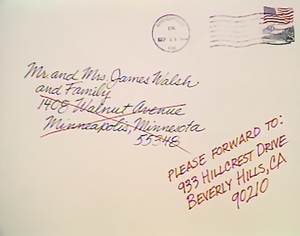 Mr. and Mrs. James Walsh
and Family
1408 Walnut Avenue
Minneapolis, Minnesota
55348
PLEASE FORWARD TO:
933 HILLCREST DRIVE
BEVERLY HILLS, CA
90210